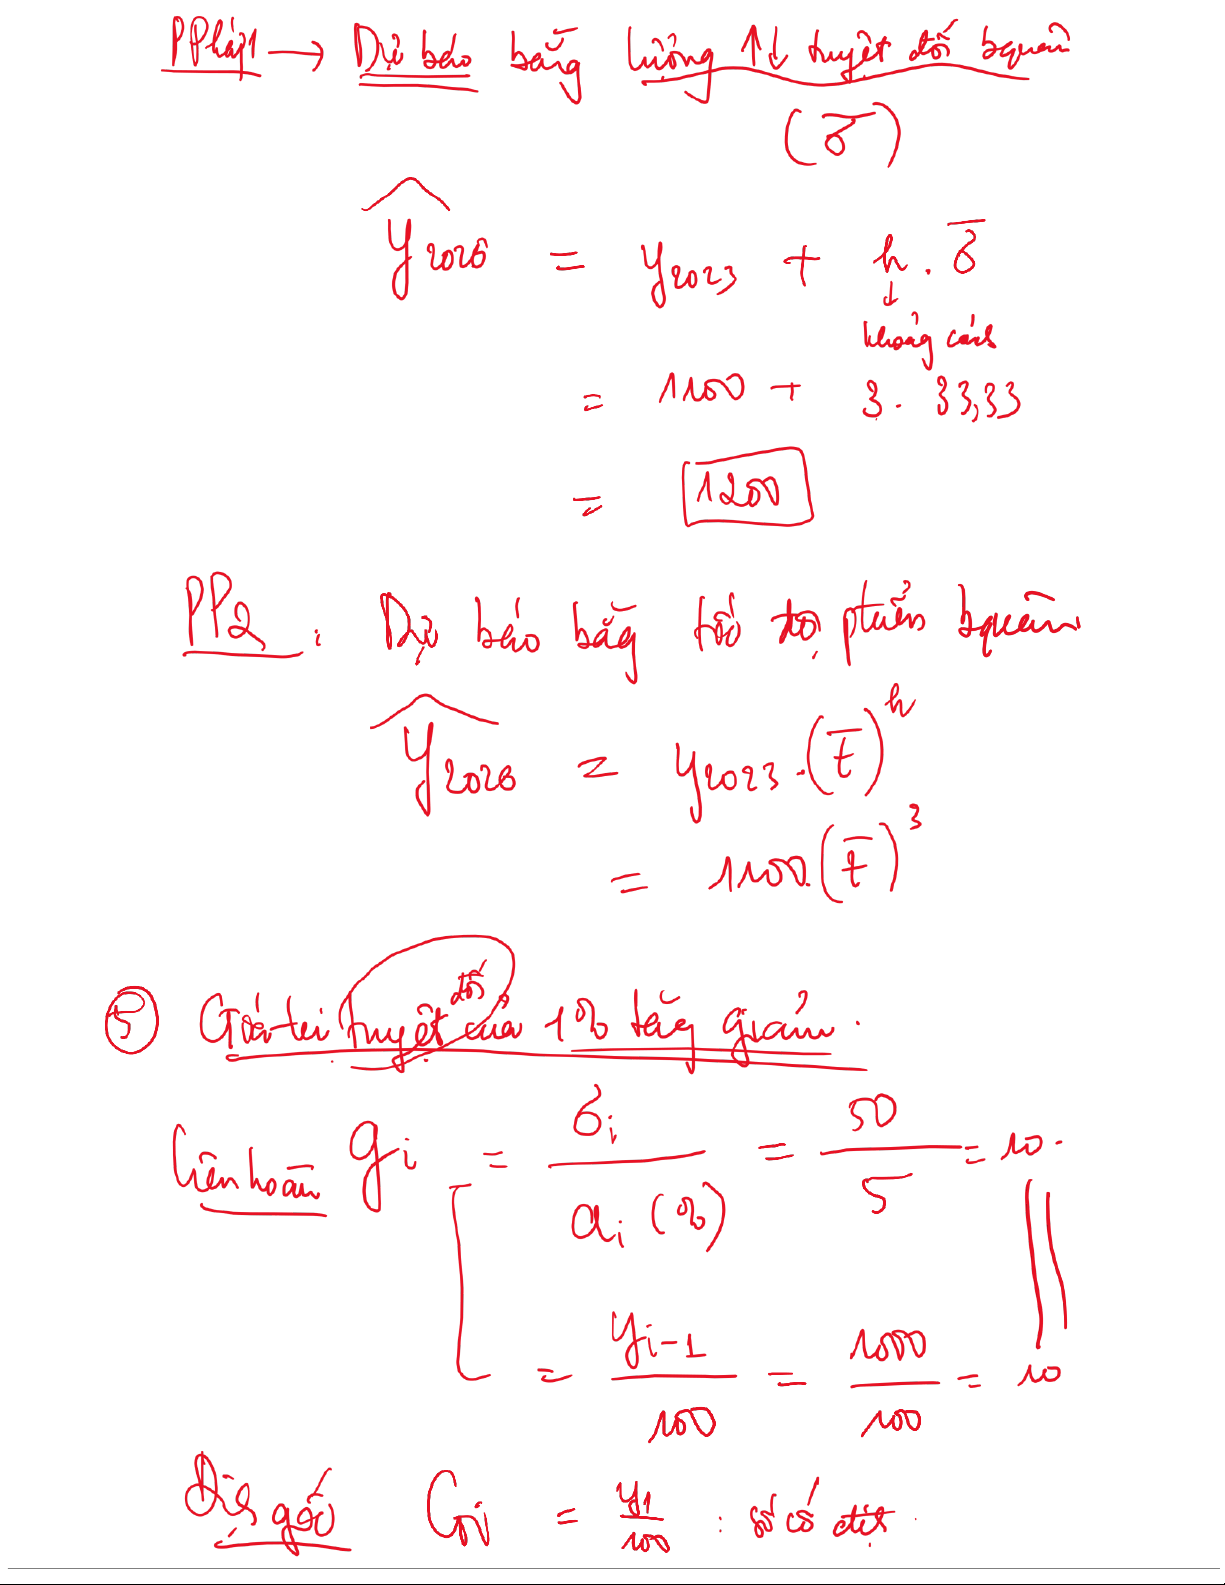 PPháp1 → Dự báo bằng lượng ↑↓ tuyệt đối bquân
(δ̄)
ŷ2026 = y2023 + h . δ̄
↓
khoảng cách
= 1100 + 3 . 33,33
= 1200
PP2 : Dự báo bằg tốc độ ptriển bquân
ŷ2026 = y2023 . (t̄)^h
= 1100 . (t̄)^3
⑤ Giá trị tuyệt đối của 1% tăg giảm .
Liên hoàn gi = δi / ai (%) = 50 / 5 = 10 .
= yi-1 / 100 = 1000 / 100 = 10
Địh gốc Gi = y1 / 100 : số cố địh .